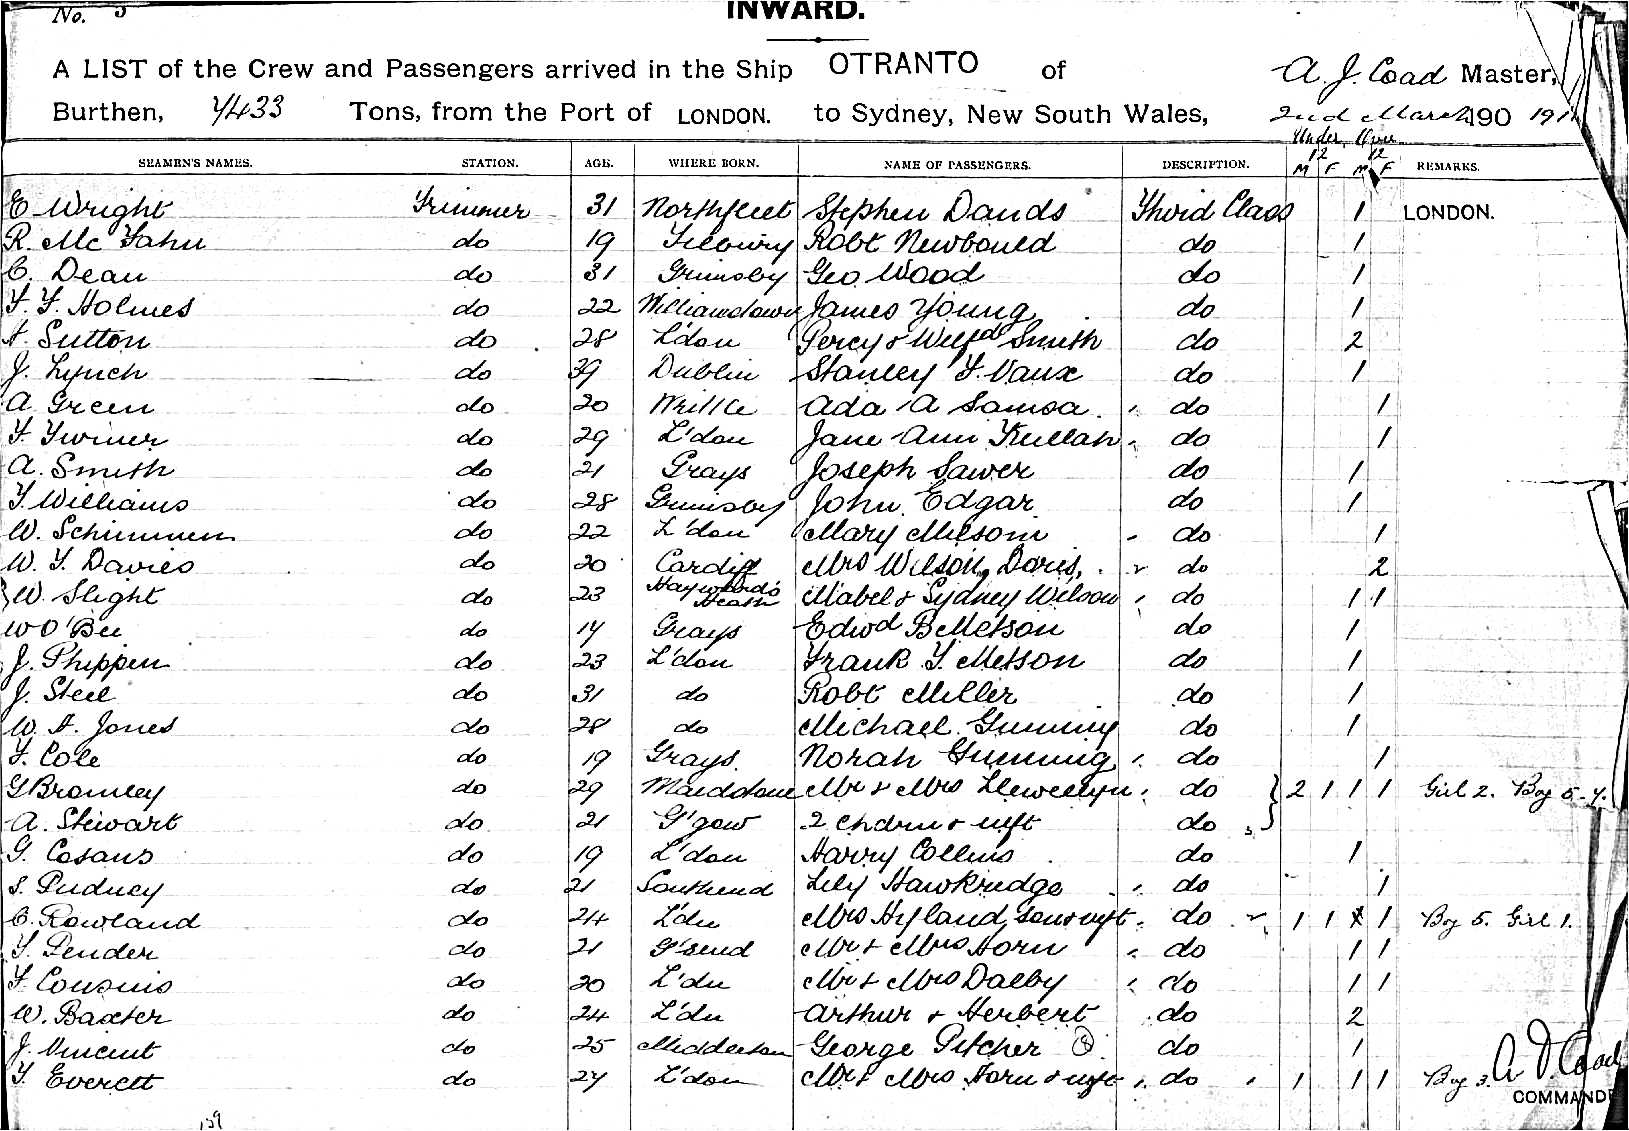 No. 3
INWARD.
A LIST of the Crew and Passengers arrived in the Ship OTRANTO of A. J. Coad Master,
Burthen, 7433 Tons, from the Port of LONDON. to Sydney, New South Wales, 2nd March 190 191
Under 12 Over 12
SEAMEN'S NAMES. STATION. AGE. WHERE BORN. NAME OF PASSENGERS. DESCRIPTION. M F M F REMARKS.
E Wright Trimmer 31 Northfleet Stephen Dands Third Class 1 LONDON.
R. Mc Fahn do 19 Tilbury Robt Newbould do 1
C. Dean do 31 Grimsby Geo. Wood do 1
F. F. Holmes do 22 Williamstown James Young do 1
A. Sutton do 28 L'don Percy & Wilfd Smith do 2
J. Lynch do 39 Dublin Stanley F. Vaux do 1
A Green do 20 Writtle Ada A Samsa do 1
F. Twiner do 29 L'don Jane Ann do 1
A. Smith do 21 Grays Joseph Sawer do 1
T. Williams do 28 Grimsby John Edgar do 1
W. Schimmen do 22 L'don Mary Milsom do 1
W. T. Davies do 20 Cardiff Mrs Wilson, Doris, do 2
W. Slight do 23 Hayward's Heath Mabel & Sydney Wilson do 1 1
W O'Bee do 17 Grays Edwd B Metson do 1
J. Phippen do 23 L'don Frank T. Metson do 1
J. Steel do 31 do Robt Miller do 1
W. A. Jones do 28 do Michael Gumming do 1
F. Cole do 19 Grays. Norah Gumming do 1
G Bromley do 29 Maidstone Mr & Mrs Llewellyn do 2 1 1 1 Girl 2. Boy 5-7.
A. Stewart do 21 G'gow 2 chdrn & inft do
G. Cosans do 19 L'don Harry Collins do 1
S. Pudney do 21 Southend Lily Hawkridge do 1
C. Rowland do 24 L'dn Mrs Hyland, son & inft do 1 1 1 Boy 5. Girl 1.
T. Pender do 21 G'send Mr & Mrs Horn do 1 1
F. Cousins do 20 L'dn Mr & Mrs Dalby do 1 1
W. Baxter do 24 L'dn Arthur & Herbert do 2
J. Vincent do 25 George Pitcher do 1
T. Everett do 27 L'don Mr & Mrs Horn & inft do 1 1 1 Boy 3.
A J Coad
COMMANDE
139